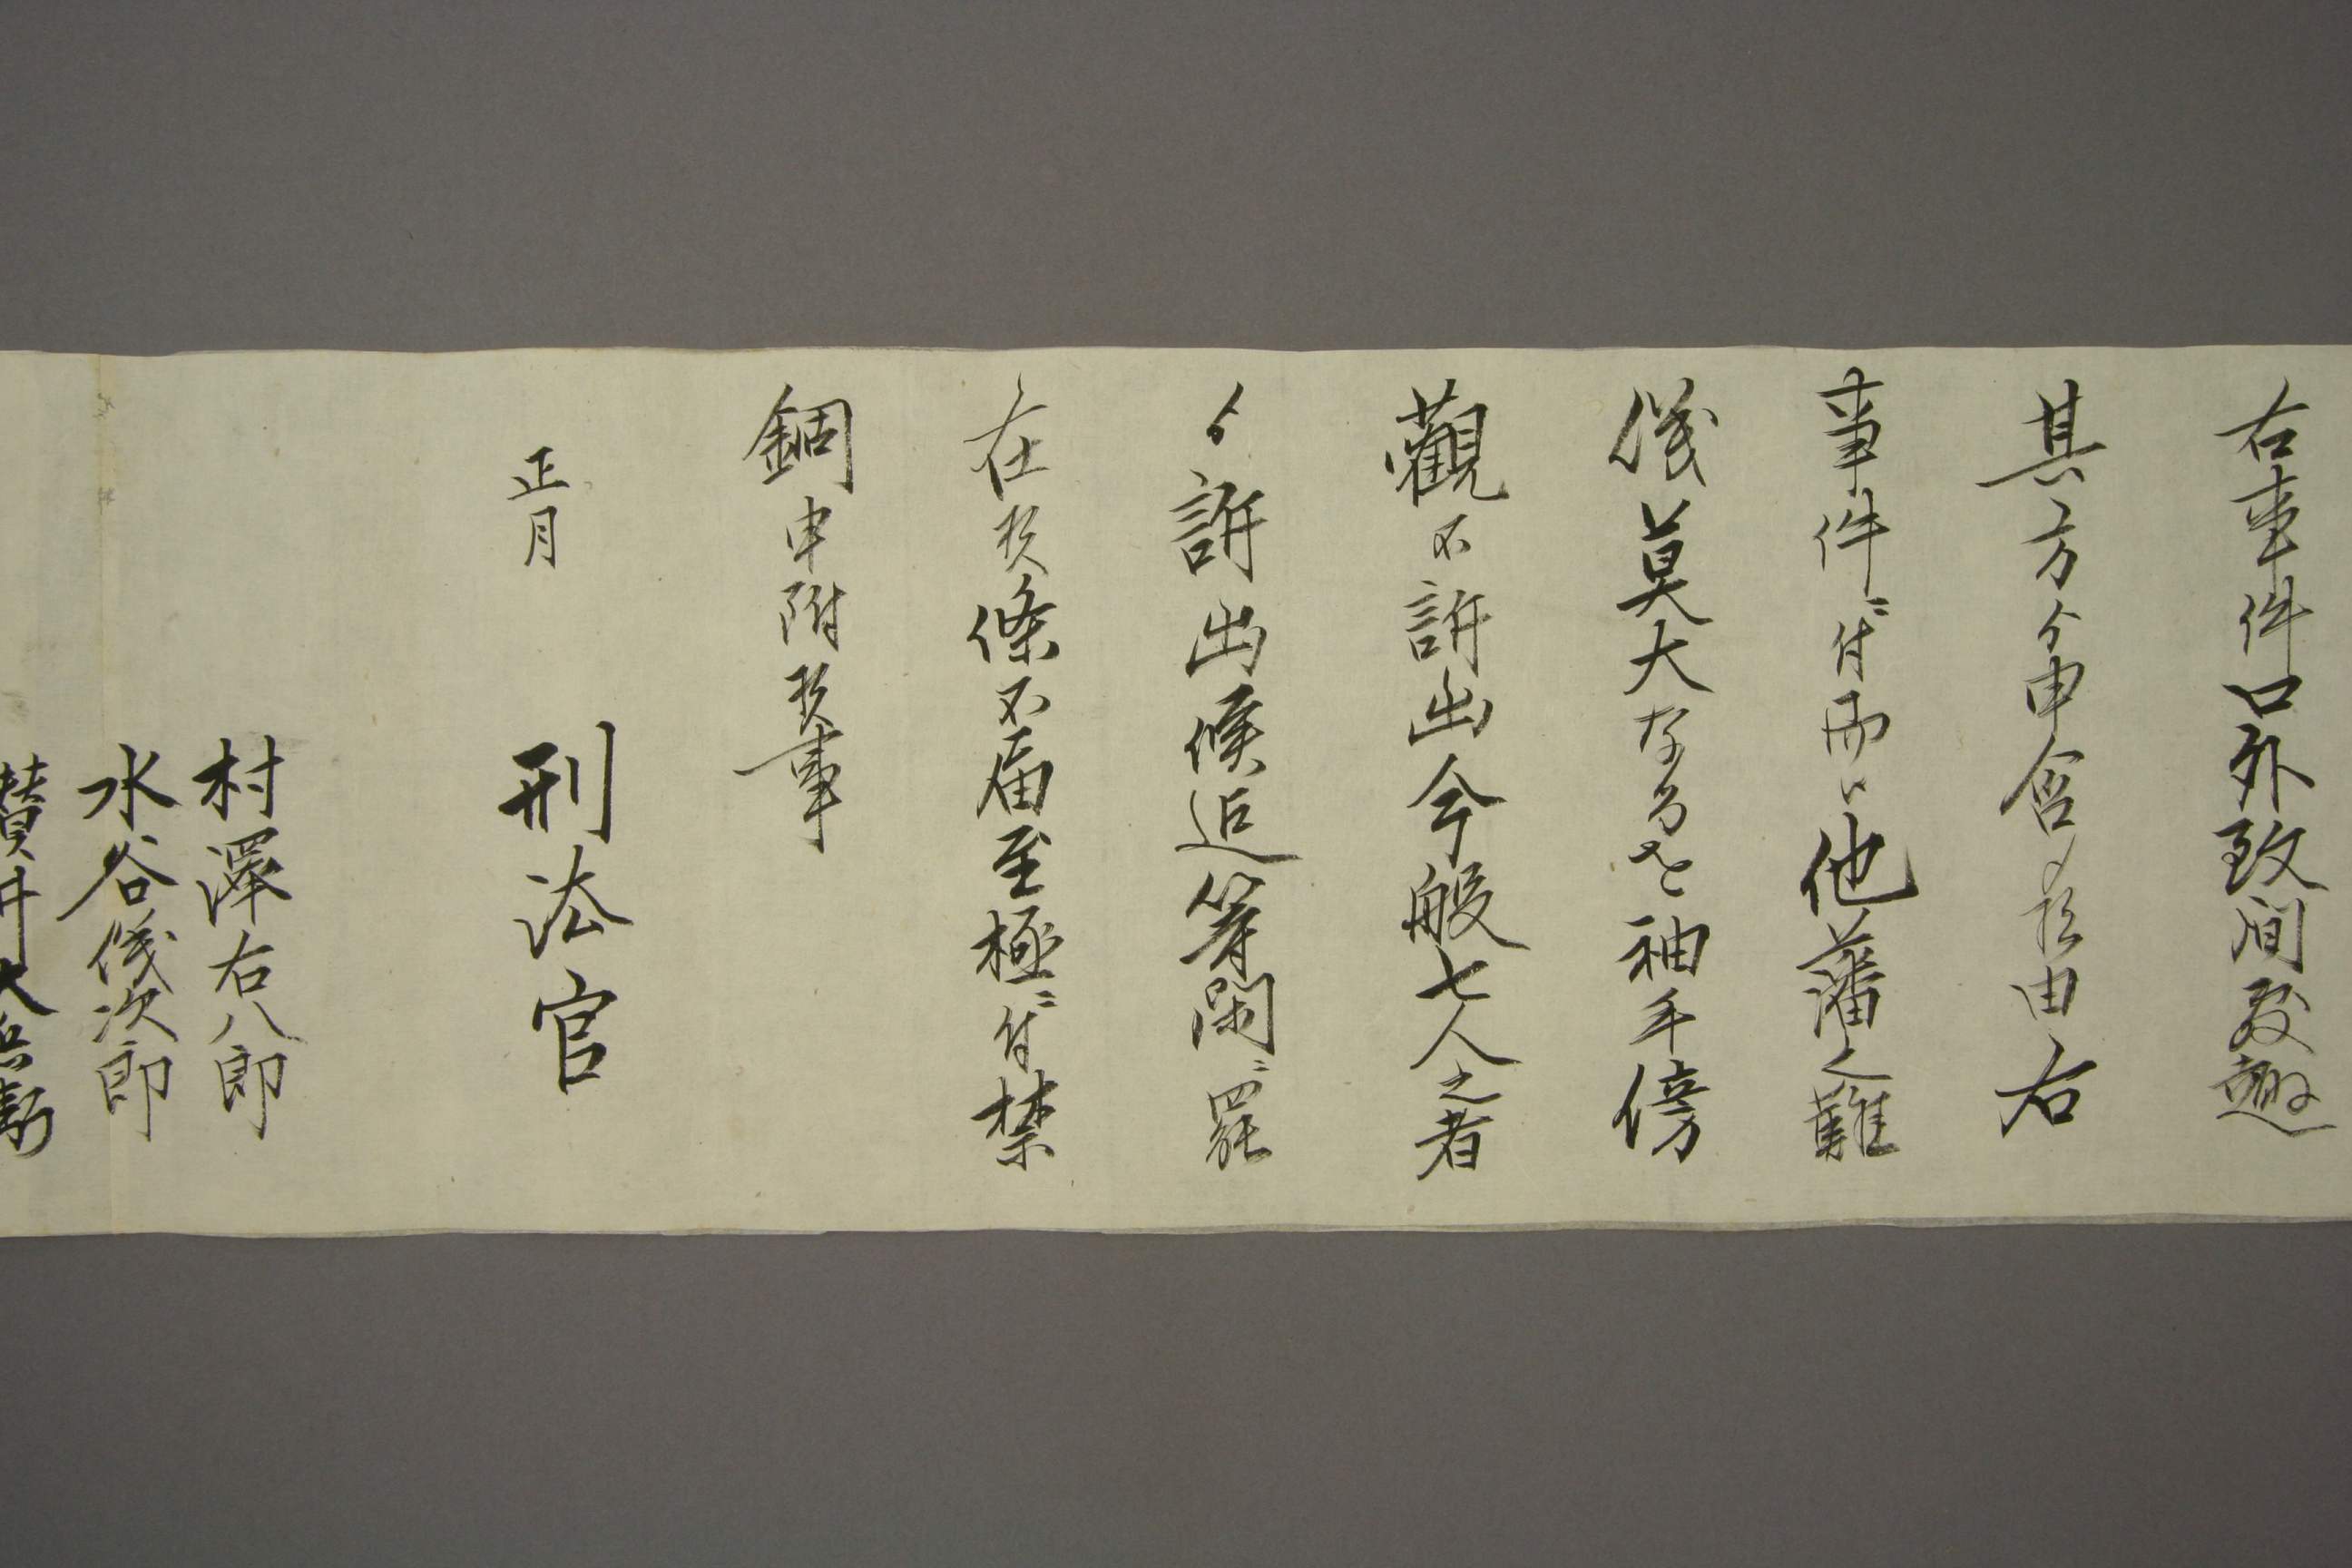 右事件口外致間敷趣
其方ゟ申含候由右
事件ニ付而ハ他藩之難
儀莫大なるを袖手傍
觀不訴出今般七人之者
ゟ訴出候迄等閑ニ罷
在候條不届至極ニ付禁
錮申附候事
正月　刑法官
村澤右八郎
水谷儀次郎